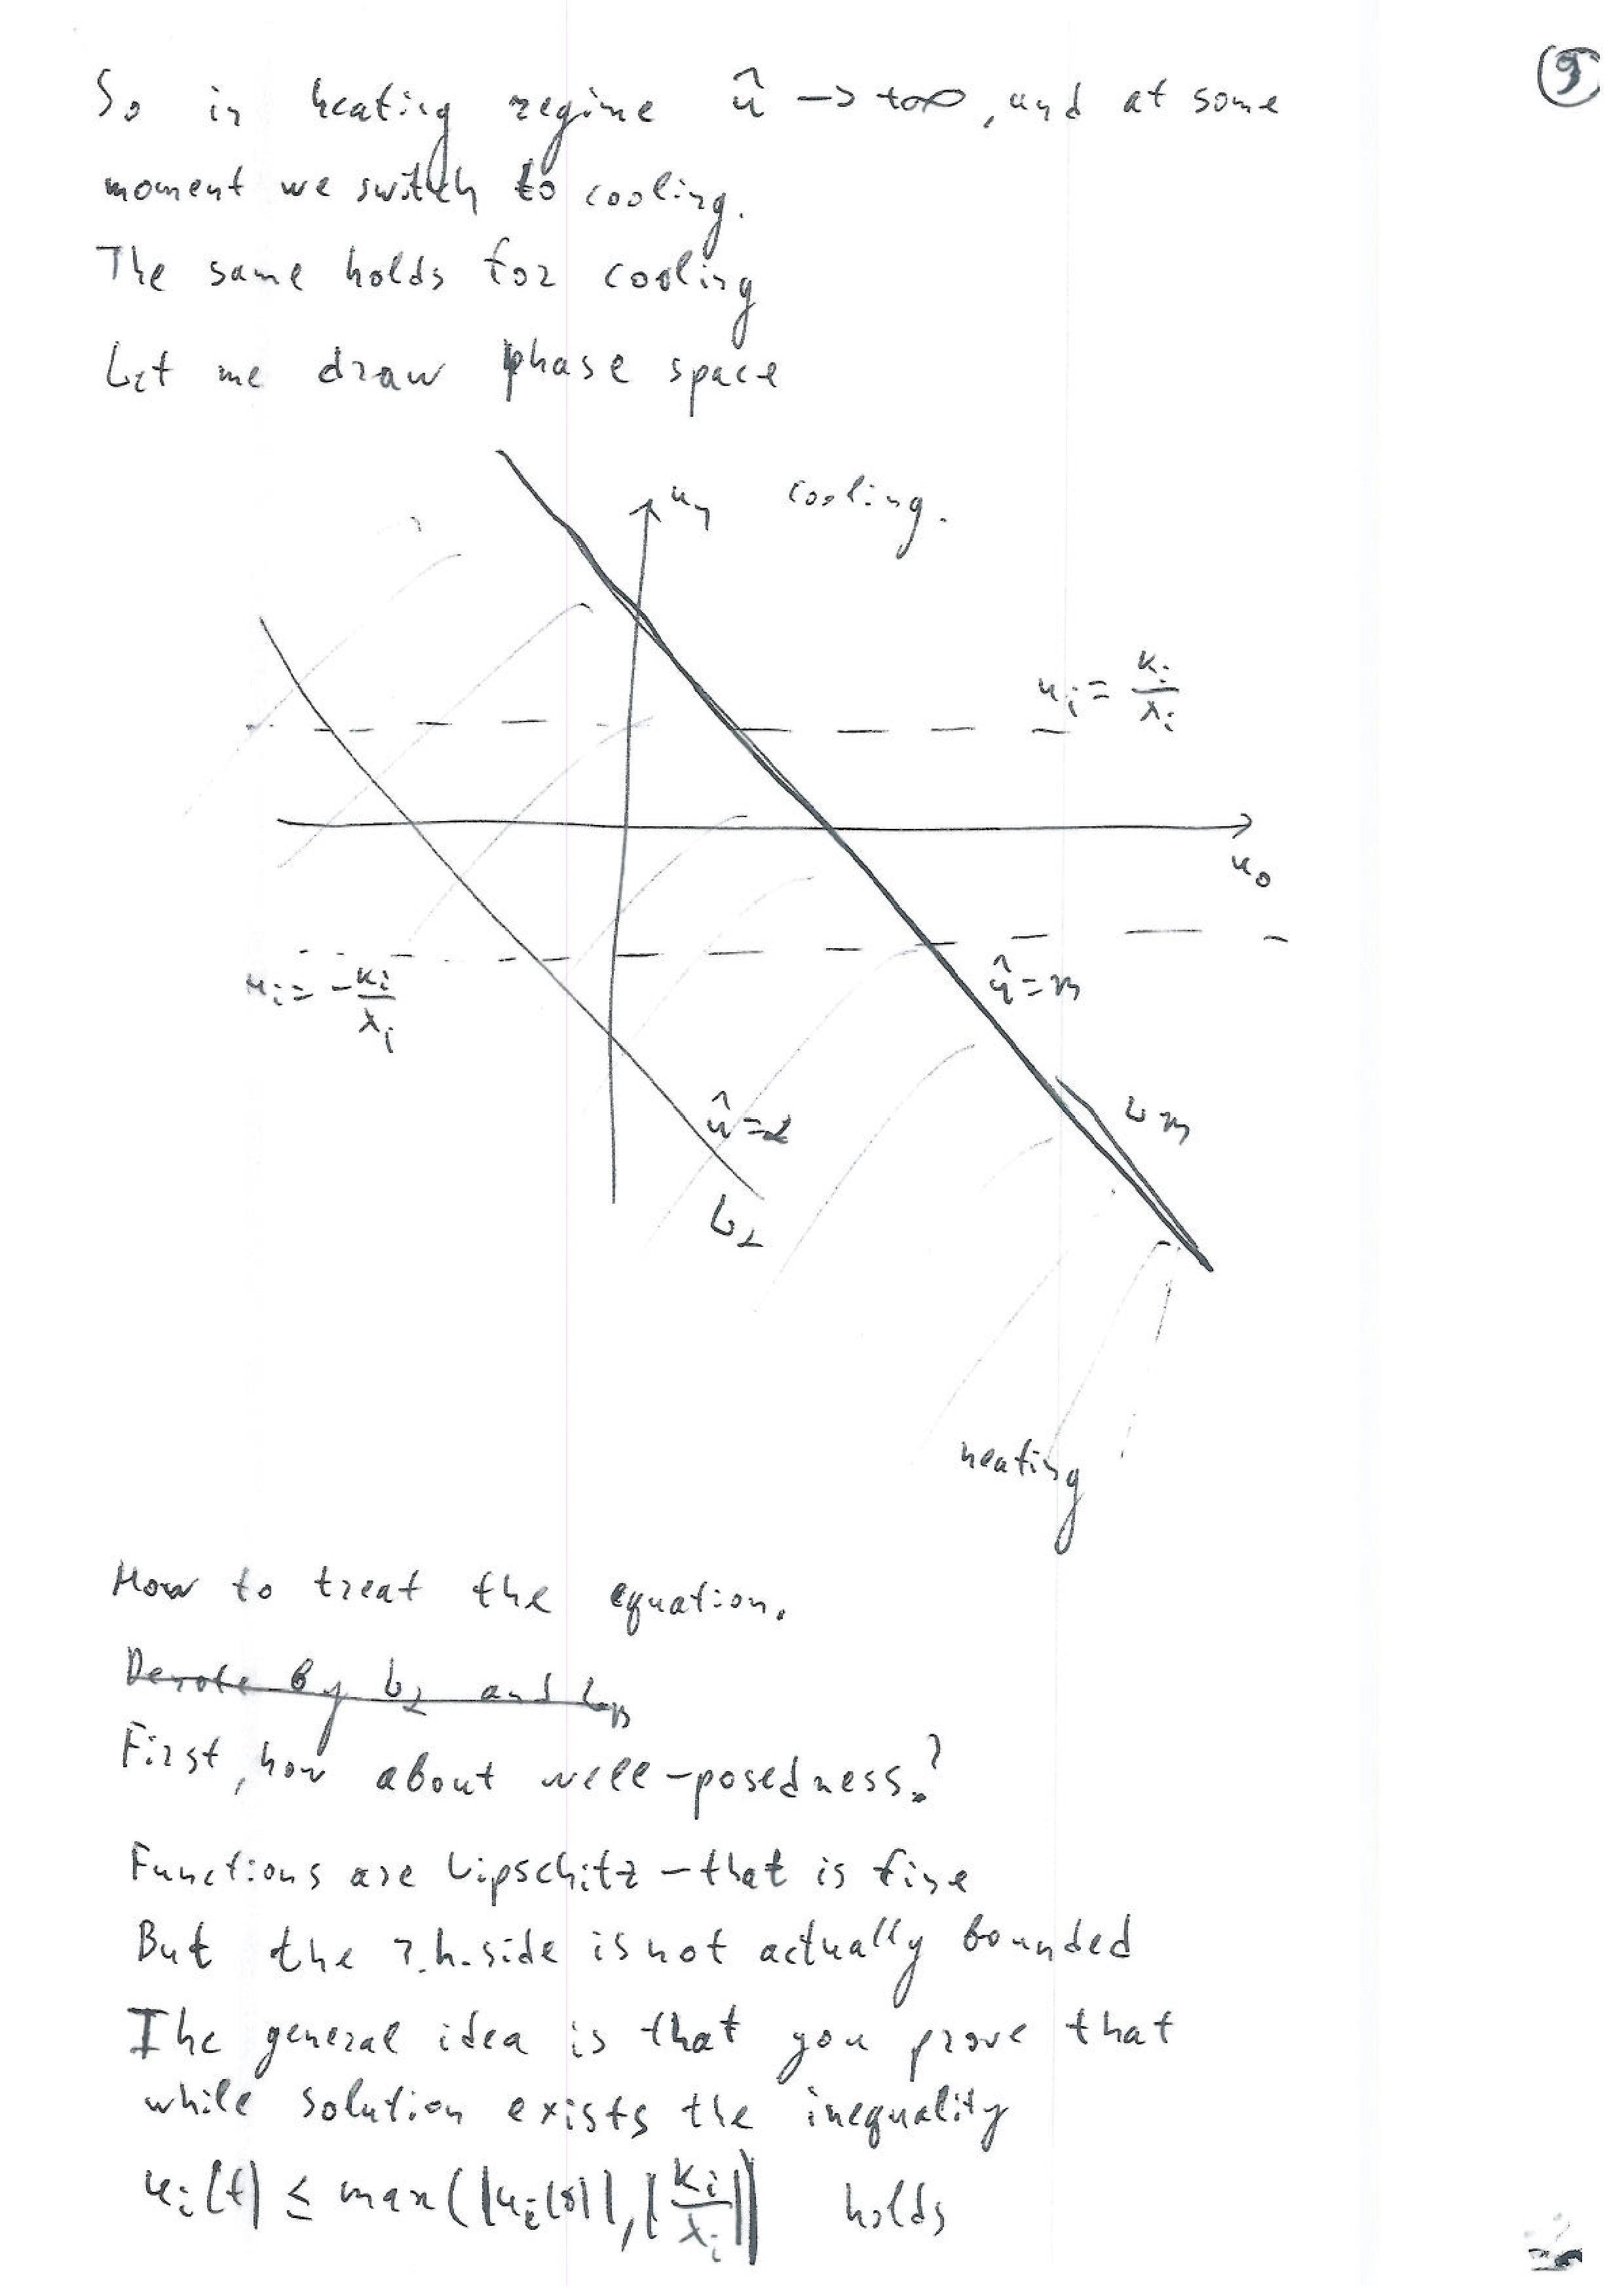 So in heating regime û → +∞, and at some
⑨
moment we switch to cooling.
The same holds for cooling
Let me draw phase space
cooling.
u_i = K_i/λ_i
u_0
u_i = -K_i/λ_i
û=β
L_β
û=α
L_α
heating
How to treat the equation.
Denote by L_α and L_β
First, how about well-posedness?
Functions are Lipschitz – that is fine
But the r.h.side is not actually bounded
The general idea is that you prove that
while solution exists the inequality
u_i(t) ≤ max(|u_i(0)|, |K_i/λ_i|) holds